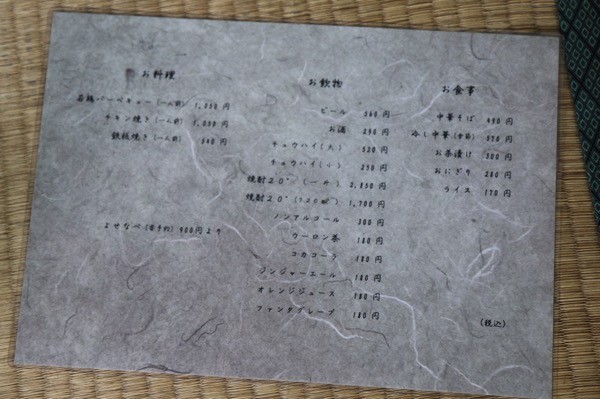 お料理
若鶏バーベキュー(一人前) 1,050 円
チキン焼き(一人前) 1,050 円
鉄板焼き(一人前) 840 円
よせなべ(要予約) 900円より
お飲物
ビール 560 円
お酒 290 円
チュウハイ(大) 520 円
チュウハイ(小) 250 円
焼酎20°(一升) 2,850 円
焼酎20°(720㎖) 1,700 円
ノンアルコール 300 円
ウーロン茶 180 円
コカコーラ 180 円
ジンジャーエール 180 円
オレンジジュース 180 円
ファンタグレープ 180 円
お食事
中華そば 490 円
冷し中華 550 円
お茶漬け 300 円
おにぎり 200 円
ライス 170 円
(税込)